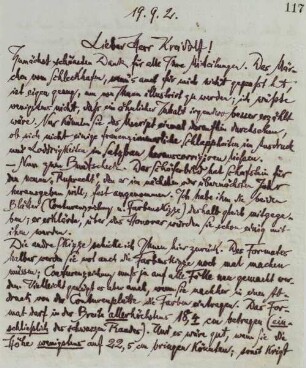 117
19. 9. 21.
Lieber Herr Kreidolf!
Zunächst schönsten Dank für alle Ihre Mitteilungen. Das Mär-
chen vom Schleckhafen, wenn's auch für mich nicht gepaßt hat,
ist eigen genug, um von Ihnen illustriert zu werden; ich wüßte
wenigstens nicht, daß ein ähnlicher Inhalt irgendwo besser erzählt
wäre. Nur können Sie das ja erst einmal daraufhin durchsehen,
ob sich nicht einige Schlappheiten im Ausdruck
und Loddrigkeiten im Satzbau herauscorrigieren ließen.
— Nun zum Buntscheck. Das Schiferbild hat Schafstein für
den neuen Knecht Ruprecht, den er im nächsten oder übernächsten Jahr
herausgeben will, fest angenommen. Ich habe ihm die beiden
Blätter (Conturzeichnung u. Farbenskizze) deshalb gleich mitgege-
ben; er erklärte, über das Honorar würden Sie schon einig mit
ihm werden.
Die andre Skizze schicke ich Ihnen hier zurück. Des Formates
halber werden Sie wol auch die Farbenskizze noch mal machen
müssen; Conturzeichnung muß ja auf alle Fälle neu gemacht wer-
den. Vielleicht genügt es aber auch, wenn Sie nachher in einen Ab-
druck von der Conturenplatte die Farben eintragen. Das For-
mat darf in der Breite allerhöchstens 18,5 cm betragen (ein-
schließlich des schwarzen Randes). Und es wäre gut, wenn Sie die
Höhe wenigstens auf 22,5 cm bringen könnten; sonst kriegt